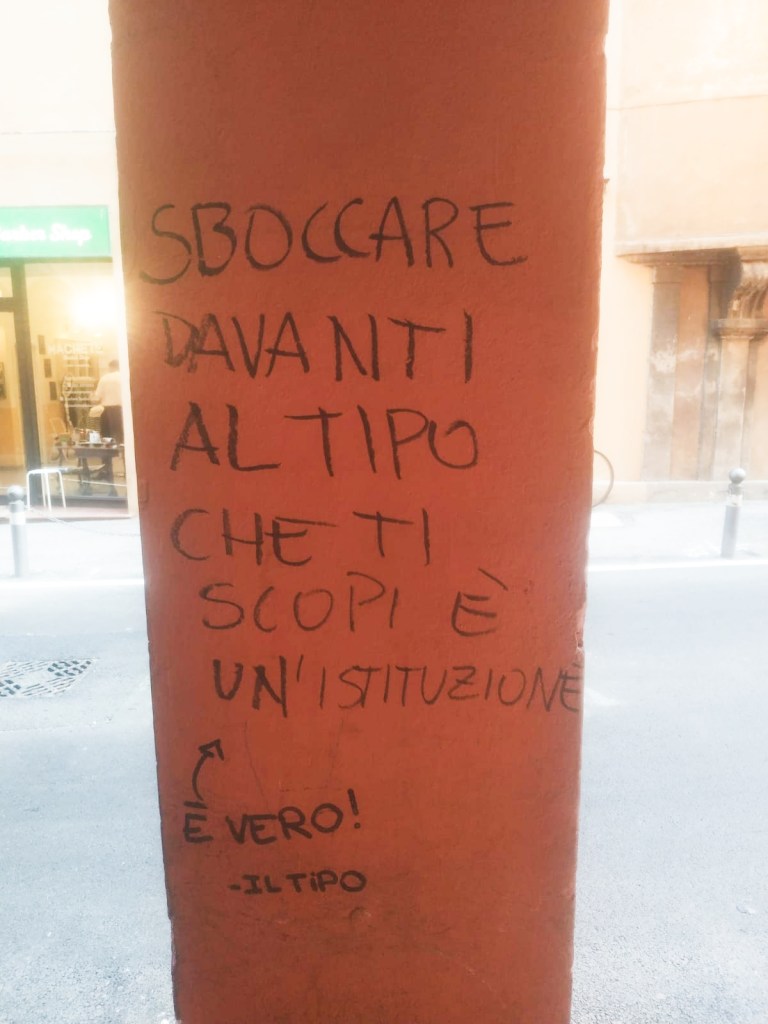 SBOCCARE
DAVANTI
AL TIPO
CHE TI
SCOPI È
UN'ISTITUZIONE
È VERO!
-IL TiPO
Shop